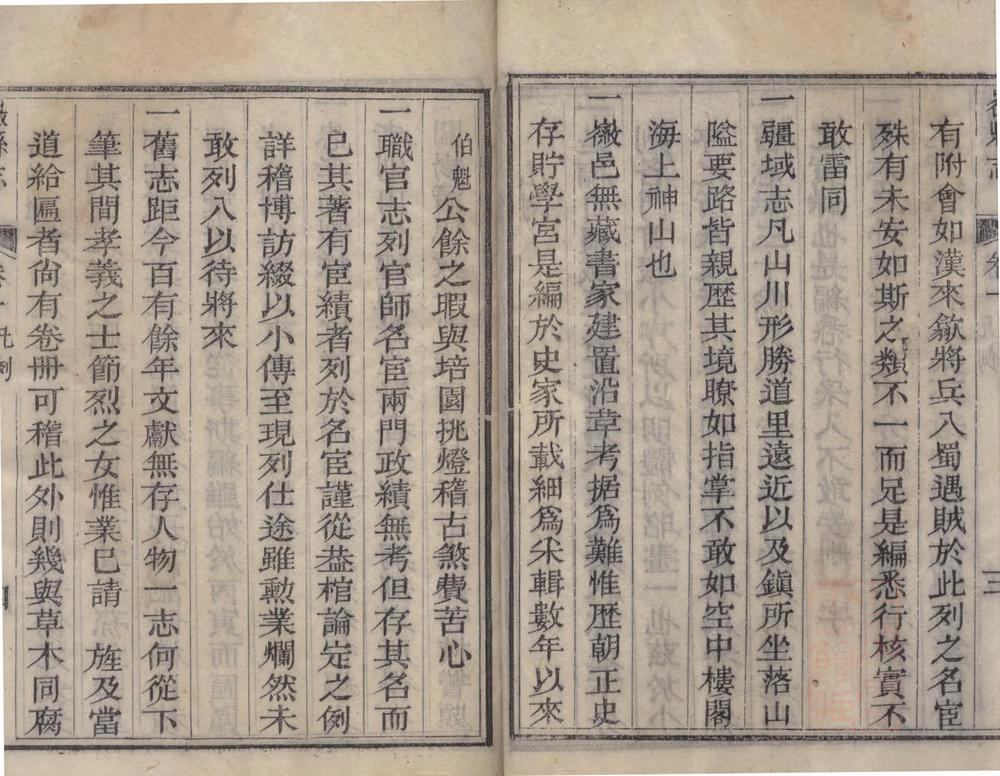 有附會如漢來歙將兵入蜀遇賊於此列之名宦
殊有未安如斯之類不一而足是編悉行核實不
敢雷同
一疆域志凡山川形勝道里遠近以及鎮所坐落山
隘要路皆親歷其境瞭如指掌不敢如空中樓閣
海上神山也
一徽邑無藏書家建置沿革考据爲難惟歷朝正史
存貯學宮是編於史家所載細爲采輯數年以來
伯魁公餘之暇與培園挑燈稽古煞費苦心
一職官志列官師名宦兩門政績無考但存其名而
已其著有宦績者列於名宦謹從葢棺論定之例
詳稽博訪綴以小傳至現列仕途雖勳業爛然未
敢列入以待將來
一舊志距今百有餘年文獻無存人物一志何從下
筆其間孝義之士節烈之女惟業已請 旌及當
道給匾者尙有卷冊可稽此外則幾與草木同腐
徽縣志 卷一 凡例
三